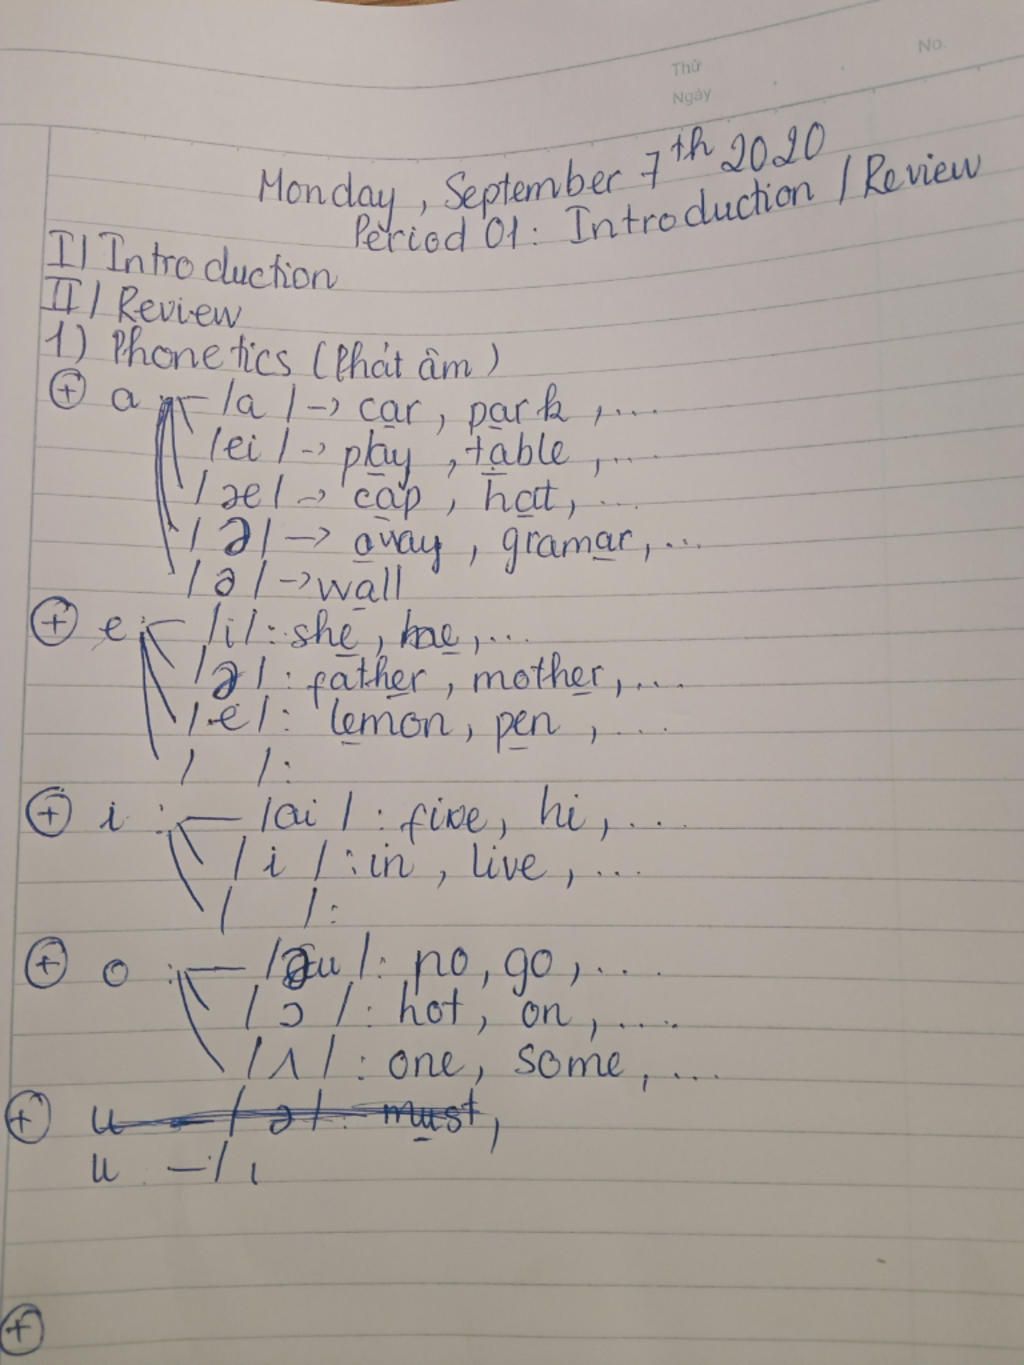 Thứ
No.
Ngày
Monday, September 7th 2020
Period 01: Introduction / Review
I/ Introduction
II/ Review
1) Phonetics (Phát âm)
⊕ a /a/ -> car, park, ...
/ei/ -> play, table, ...
/æ/ -> cap, hat, ...
/ə/ -> away, gramar, ...
/ə/ -> wall
⊕ e: /i/: she, me, ...
/ə/: father, mother, ...
/e/: lemon, pen, ...
/ /:
⊕ i: /ai/: five, hi, ...
/i/: in, live, ...
/ /:
⊕ o: /əu/: no, go, ...
/ɔ/: hot, on, ....
/ʌ/: one, some, ...
⊕ u — /ə/: must,
u — / ı
⊕